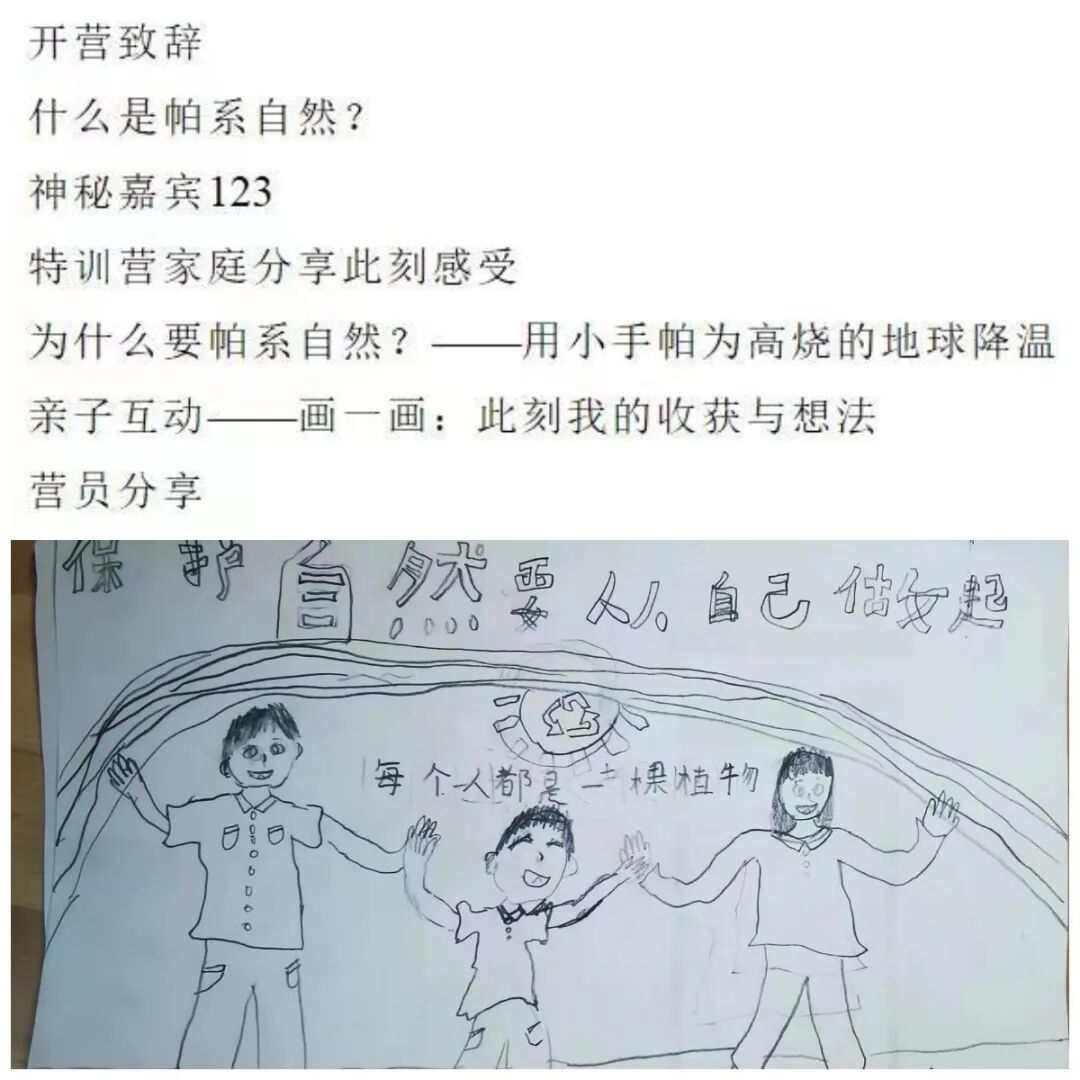 开营致辞
什么是帕系自然？
神秘嘉宾123
特训营家庭分享此刻感受
为什么要帕系自然？——用小手帕为高烧的地球降温
亲子互动——画一画：此刻我的收获与想法
营员分享
保护自然要从自己做起
每个人都是一棵植物